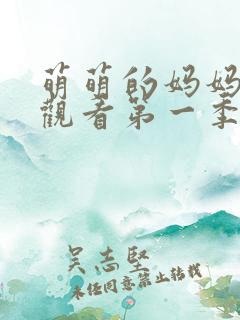 萌萌的妈妈
觀看第一季
吴志堅
未任同意禁止转载